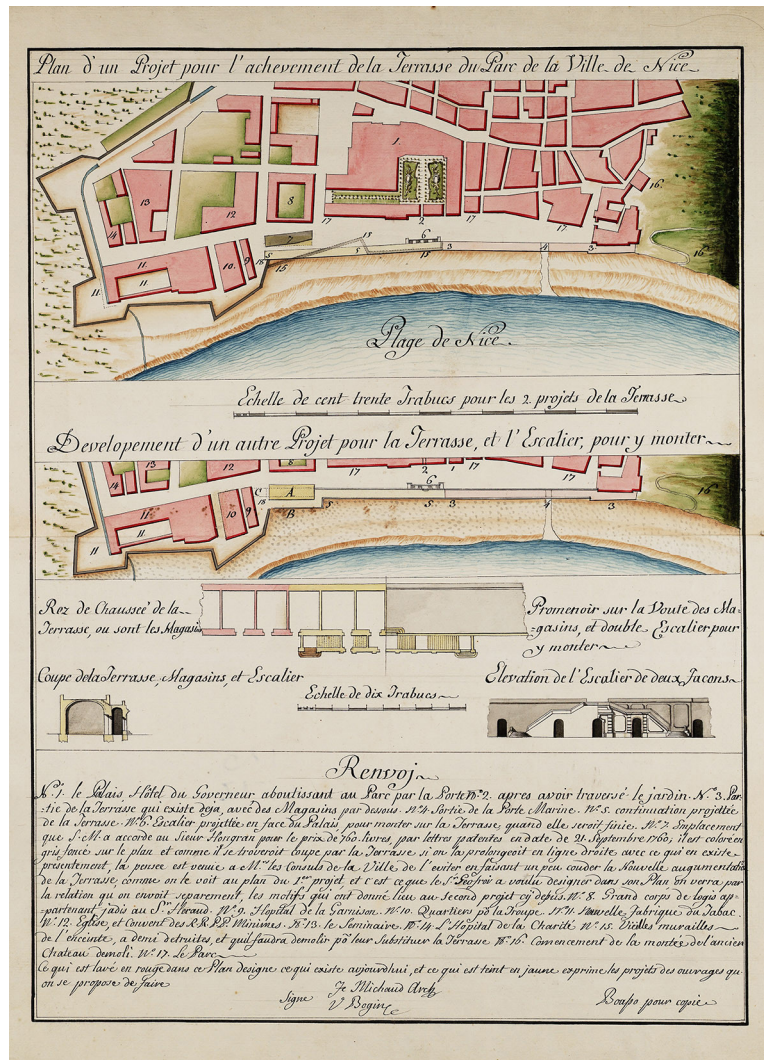 Plan d'un Projet pour l'achevement de la Terrasse du Parc de la Ville de Nice
1.
16.
13
12
8
14
17
2
17.
17.
7
15
6
3
4
3.
16
11.
11
10.
9
18
5
15
5
15
11.
Plage de Nice.
Echelle de cent trente Trabucs pour les 2. projets de la Terrasse
Developement d'un autre Projet pour la Terrasse, et l'Escalier, pour y monter
13
12
8
17
2
1
17
17
14
C
A
6
16
11
10
9
18
B
5
5
3
4
3
11
11
Rez de Chausseé de la
Terrasse, ou sont les Magasis
Promenoir sur la Voute des Ma-
-gasins, et double Escalier pour
y monter
Coupe de la Terrasse, Magasins, et Escalier
Echelle de dix Trabucs
Elevation de l'Escalier de deux facons
Renvoj
N.º 1. le Palais, Hôtel du Governeur aboutissant au Parc par la Porte Nº 2. apres avoir traversé le jardin. N.º 3. Par-
tie de la Terrasse qui existe deja, avec des Magasins par dusous. Nº 4. Sortie de la Porte Marine. Nº 5. continuation projettée
de la Terrasse. Nº 6. Escalier projettée en face du Palais, pour monter sur la Terrasse, quand elle seroit finie. Nº 7. Implacement
que S. M. a accordé au Sieur Hongran pour le prix de 760. livres, par lettres patentes en date de 21. Septembre 1760; il est coloré en
gris foncé sur le plan et comme il se troveroit coupe par la Terrasse si on la prolongeoit en ligne droite avec ce qui en existe
présentement, la pensee est venue a M.rs les Consuls de la Ville de l'eviter en faisant un peu couder la Nouvelle augumentation
de la Terrasse, comme on le voit au plan du 1.er projet, et c'est ce que le S.r Geofroi a voulu designer dans son Plan on verra par
la relation qu'on envoit separement, les motifs qui ont donné lieu au second projet cy depus. Nº 8. Grand corps de logis ap-
partenant jadis au S.r Heraud. Nº 9. Hôpital de la Garnison. Nº 10. Quartiers pô la Troupe. Nº 11. Nouvelle fabrique du Tabac.
Nº 12. Eglise, et Convent des R.R. P.P. Minimes. Nº 13. le Seminaire. Nº 14. L'Hopital de la Charité. Nº 15. Vieilles murailles
de l'enceinte, a demi detruites, et qu'il faudra demolir pô leur Substituer la Terrasse. Nº 16. Commencement de la montée de l'ancien
Chateau demoli. Nº 17. Le Parc
Ce qui est lavé en rouge dans ce Plan designe ce qui existe aujourd'hui, et ce qui est teint en jaune exprime les projets des ouvrages qu
on se propose de faire
Signe Je Michaud Arch.
V Begin
Boasso pour copie